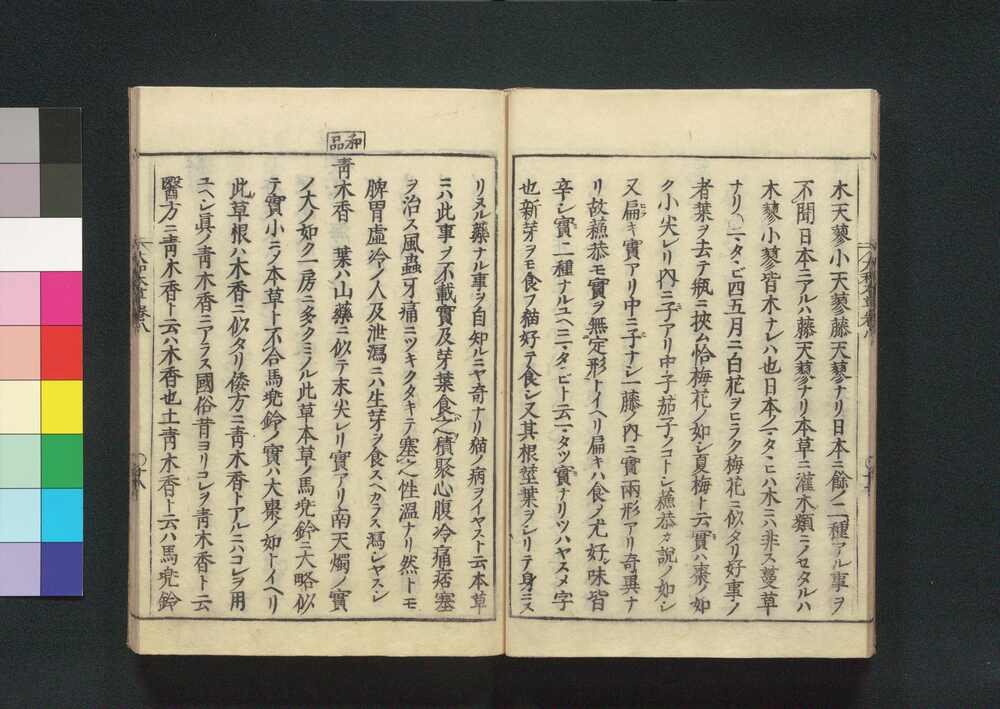 木天蓼小天蓼藤天蓼ナリ日本ニ餘ノ二種アル事ヲ
不聞日本ニアルハ藤天蓼ナリ本草ニ灌木類ニノセタルハ
木蓼小蓼皆木ナレハ也日本ノマタヽヒハ木ニハ非ス蔓草
ナリマタヽビ四五月ニ白花ヲヒラク梅花ニ似タリ好事ノ
者葉ヲ去テ瓶ニ挾ム恰梅花ノ如シ夏梅ト云實ハ棗ノ如
ク小尖レリ内ニ子アリ中子茄子ノコトシ蘓恭カ説ノ如シ
又扁キ實アリ中ニ子ナシ一藤ノ内ニ實兩形アリ奇異ナ
リ故蘓恭モ實ヲ無定形トイヘリ扁キハ食ノ尤好味皆
辛シ實二種ナルユヘニマタヽビト云マタツ實ナリツハヤスメ字
也新芽ヲモ食フ猫好テ食シ又其根莖葉ヲシリテ身ニス
リヌル藥ナル事ヲ自知ルニヤ奇ナリ猫ノ病ヲイヤスト云本草
ニハ此事ヲ不載實及芽葉食之積聚心腹冷痛痞塞
ヲ治ス風蟲牙痛ニツキクタキテ塞之性温ナリ然トモ
脾胃虚冷ノ人及泄瀉ニハ生芽ヲ食スヘカラス瀉シヤスシ
和品
青木香 葉ハ山藥ニ似テ末尖レリ實アリ南天燭ノ實
ノ大ノ如ク一房ニ多クミノル此草本草ノ馬兜鈴ニ大略似
テ實小ニシテ本草ト不合馬兜鈴ノ實ハ大棗ノ如トイヘリ
此草根ハ木香ニ似タリ倭方ニ青木香トアルニハコレヲ用
ユヘシ眞ノ青木香ニアラス國俗昔ヨリコレヲ青木香ト云
醫方ニ青木香ト云ハ木香也土青木香ト云ハ馬兜鈴